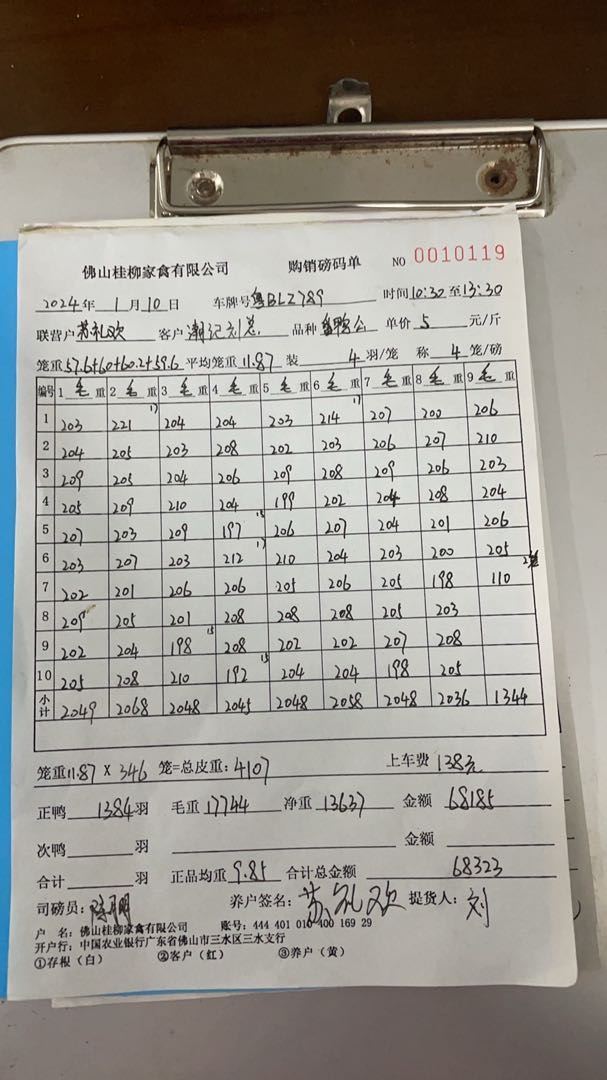 佛山桂柳家禽有限公司 购销磅码单 NO 0010119
2024年 1月10日 车牌号粤BLZ789 时间10:30至13:30
联营户苏礼欢 客户潮记刘总 品种 单价5元/斤
笼重57.6+60+60.2+59.6 平均笼重11.87 装4羽/笼 称4笼/磅
编号 1毛重 2毛重 3毛重 4毛重 5毛重 6毛重 7毛重 8毛重 9毛重
1 203 221 17 204 204 203 214 17 207 200 206
2 204 205 203 208 202 203 206 207 210
3 209 205 204 206 209 208 209 206 203
4 205 209 210 204 199 202 204 208 204
5 207 203 209 197 15 206 207 204 201 206
6 203 207 203 212 17 210 204 203 200 205
7 202 201 206 206 205 206 205 198 110
8 209 205 201 208 208 208 205 203
9 202 204 198 15 208 202 202 207 208
10 205 208 210 192 15 204 204 198 205
小计 2049 2068 2048 2045 2048 2058 2048 2036 1344
笼重11.87×346笼=总皮重:4107 上车费138元
正鸭1384羽 毛重17744 净重13637 金额68185
次鸭 羽 金额
合计 羽 正品均重9.85 合计总金额68323
司磅员: 养户签名:苏礼欢 提货人:刘
户 名:佛山桂柳家禽有限公司 账号:444 401 010 400 169 29
开户行:中国农业银行广东省佛山市三水区三水支行
①存根(白) ②客户(红) ③养户(黄)